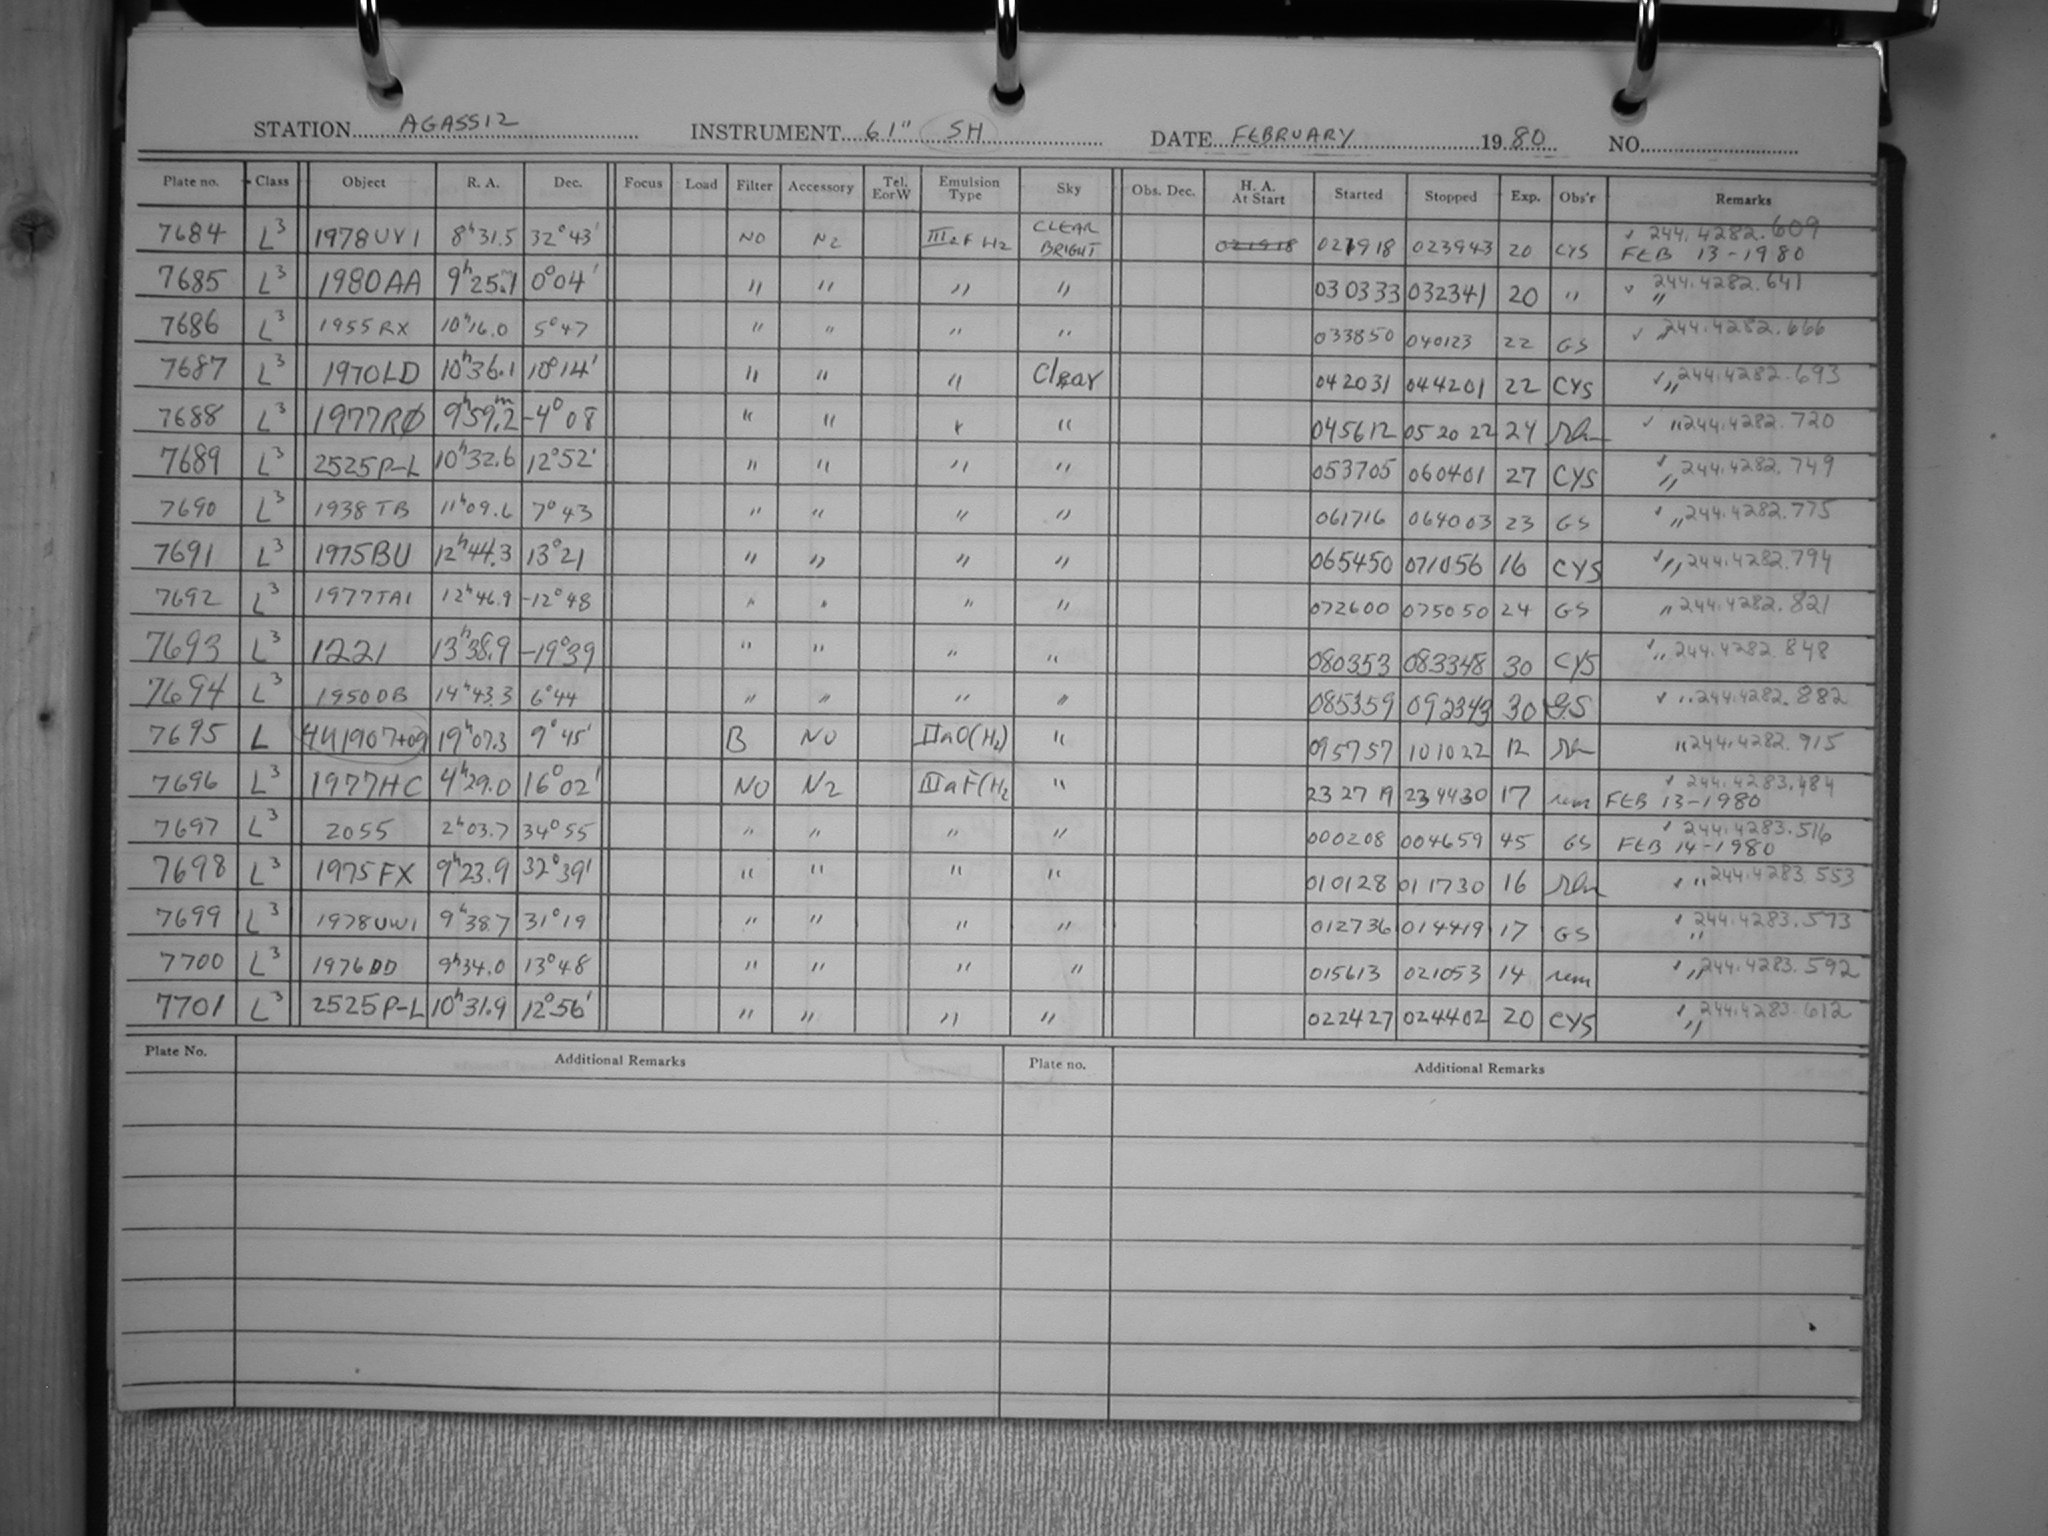 STATION AGASSIZ INSTRUMENT 61" SH DATE FEBRUARY 1980 NO.
Plate no. Class Object R. A. Dec. Focus Load Filter Accessory Tel. EorW Emulsion Type Sky Obs. Dec. H. A. At Start Started Stopped Exp. Obs'r Remarks
7684 L3 1978UY1 8h31.5 32°43' NO N2 CLEAR BRIGHT 021918 021918 023943 20 CYS ✓ 244.4282.609 FEB 13-1980
7685 L3 1980AA 9h25m.1 0°04' " " " " 030333 032341 20 " ✓ 244.4282.641 "
7686 L3 1955RX 10h16.0 5°47 " " " " 033850 040123 22 GS ✓ " 244.4282.666
7687 L3 1970LD 10h36.1 10°14' " " " Clear 042031 044201 22 CYS ✓ " 244.4282.693
7688 L3 1977RØ 9h59m.2 -4°08 " " " " 045612 052022 24 ✓ " 244.4282.720
7689 L3 2525P-L 10h32.6 12°52' " " " " 053705 060401 27 CYS ✓ " 244.4282.749
7690 L3 1938TB 11h09.6 7°43 " " " " 061716 064003 23 GS ✓ " 244.4282.775
7691 L3 1975BU 12h44.3 13°21 " " " " 065450 071056 16 CYS ✓ " 244.4282.794
7692 L3 1977TA1 12h46.9 -12°48 " " " " 072600 075050 24 GS " 244.4282.821
7693 L3 1221 13h38.9 -19°39 " " " " 080353 083348 30 CYS ✓ " 244.4282.848
7694 L3 1950DB 14h43.3 6°44 " " " " 085359 092343 30 GS ✓ " 244.4282.882
7695 L 4U1907+09 19h07.3 9°45' B NO IIaO(H2) " 095757 101022 12 " 244.4282.915
7696 L3 1977HC 4h29.0 16°02' NO N2 IIIaF(H2 " 232719 234430 17 rem ✓ 244.4283.484 FEB 13-1980
7697 L3 2055 2h03.7 34°55 " " " " 000208 004659 45 GS ✓ 244.4283.516 FEB 14-1980
7698 L3 1975FX 9h23.9 32°39' " " " " 010128 011730 16 ✓ " 244.4283.553
7699 L3 1978UW1 9h38.7 31°19 " " " " 012736 014419 17 GS ✓ 244.4283.573 "
7700 L3 1976DD 9h34.0 13°48 " " " " 015613 021053 14 rem ✓ " 244.4283.592
7701 L3 2525P-L 10h31.9 12°56' " " " " 022427 024402 20 CYS ✓ " 244.4283.612
Plate No. Additional Remarks Plate no. Additional Remarks